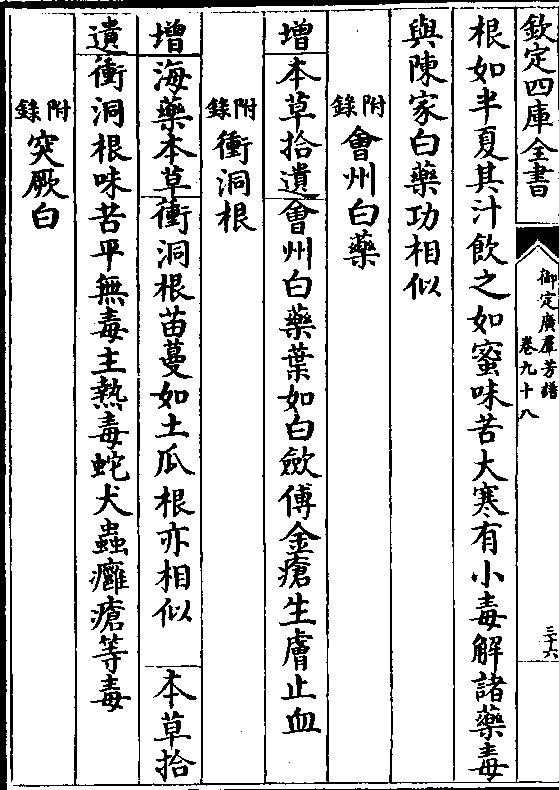 欽定四庫全書
御定廣羣芳譜
卷九十八
三十六
根如半夏其汁飲之如蜜味苦大寒有小毒解諸藥毒
與陳家白藥功相似
附錄會州白藥
增本草拾遺會州白藥葉如白斂傅金瘡生膚止血
附錄衝洞根
增海藥本草衝洞根苗蔓如土瓜根亦相似 本草拾
遺衝洞根味苦平無毒主熱毒蛇犬蟲癰瘡等毒
附錄突厥白